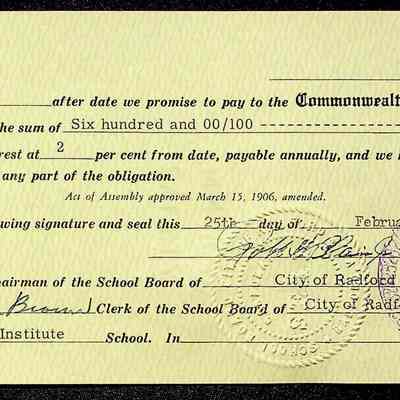 after date we promise to pay to the Commonwealt
he sum of Six hundred and 00/100 --------------------
rest at 2 per cent from date, payable annually, and we
any part of the obligation.
Act of Assembly approved March 15, 1906, amended.
wing signature and seal this 25th day of Februa
hairman of the School Board of City of Radford
Brown Clerk of the School Board of City of Radf
Institute School. In